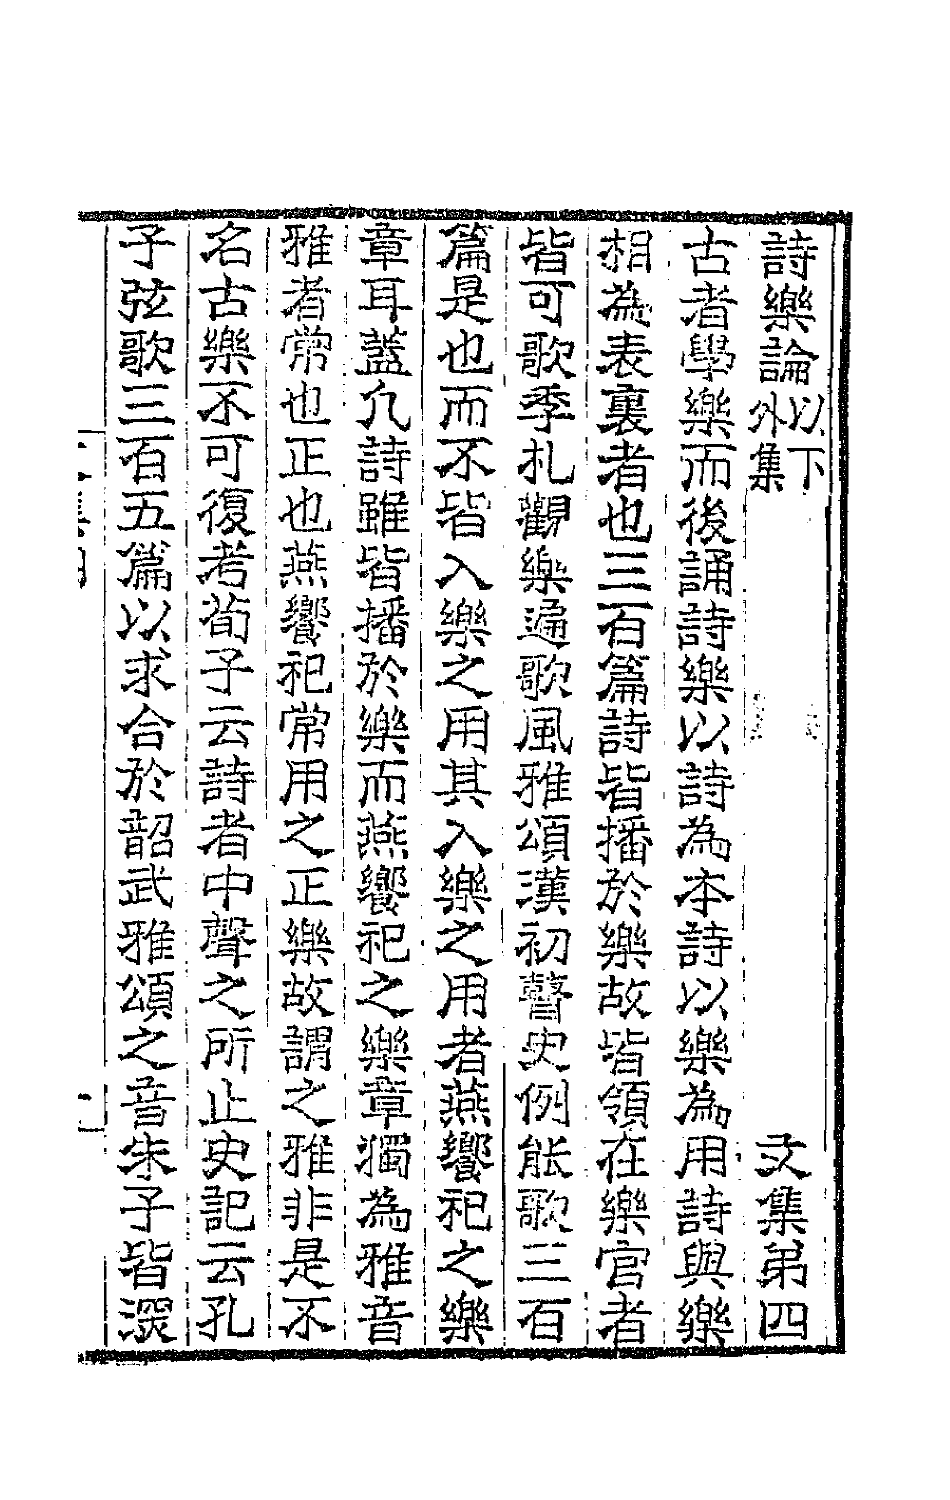 詩樂論以下外集　文集第四
古者學樂而後誦詩樂以詩為本詩以樂為用詩與樂
相為表裏者也三百篇詩皆播於樂故皆領在樂官者
皆可歌季札觀樂遍歌風雅頌漢初瞽史例能歌三百
篇是也而不皆入樂之用其入樂之用者燕饗祀之樂
章耳蓋凡詩雖皆播於樂而燕饗祀之樂章獨為雅音
雅者常也正也燕饗祀常用之正樂故謂之雅非是不
名古樂不可復考荀子云詩者中聲之所止史記云孔
子弦歌三百五篇以求合於韶武雅頌之音朱子皆深